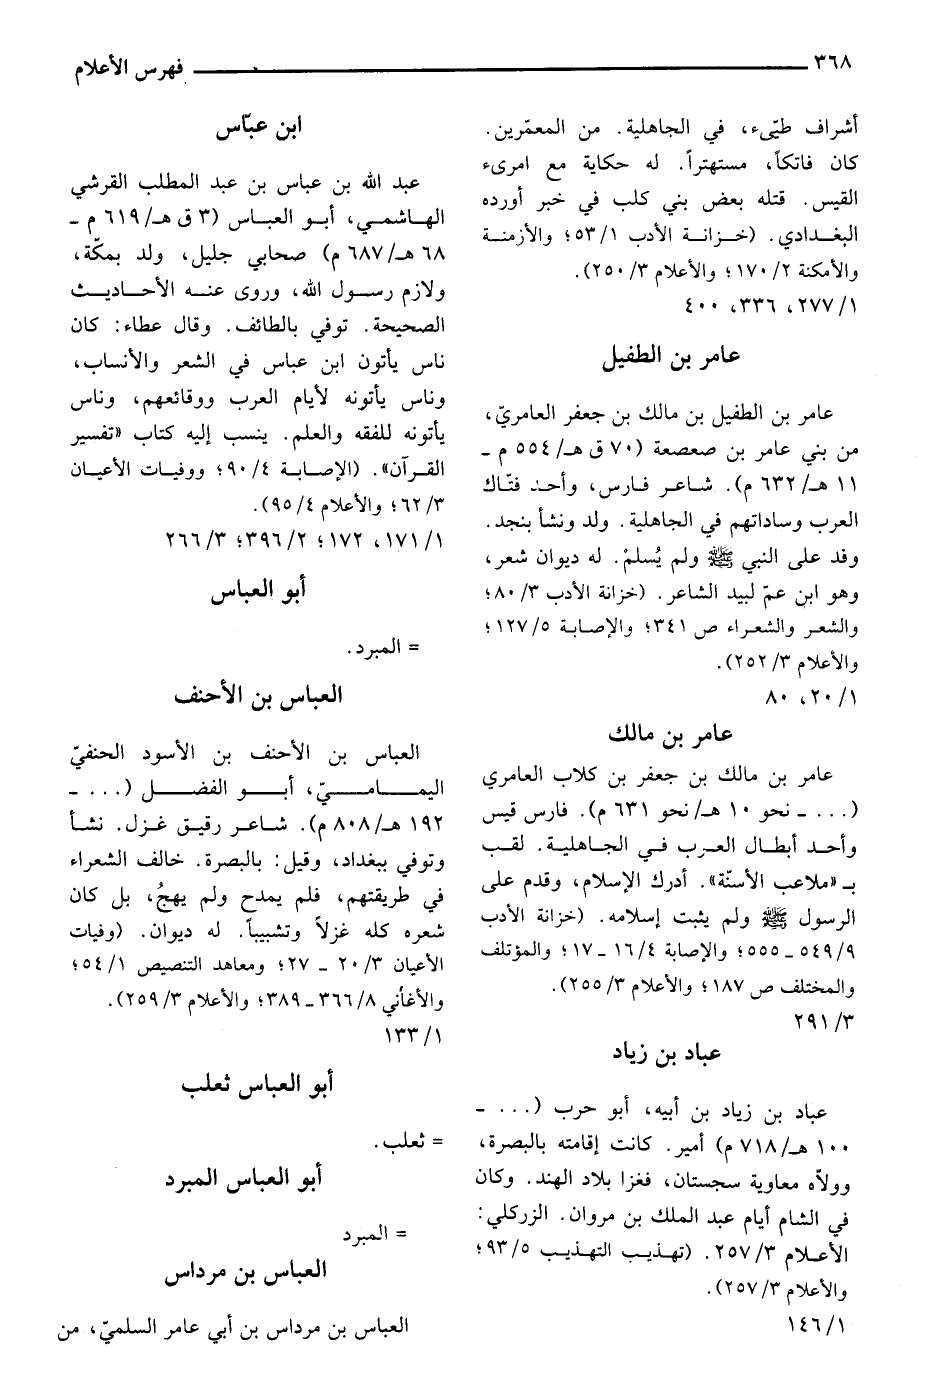 ٣٦٨ فهرس الأعلام
أشراف طيّىء، في الجاهلية. من المعمّرين.
كان فاتكاً، مستهتراً. له حكاية مع امرىء
القيس. قتله بعض بني كلب في خبر أورده
البغدادي. (خزانة الأدب ١/ ٥٣؛ والأزمنة
والأمكنة ٢/ ١٧٠؛ والأعلام ٣/ ٢٥٠).
١/ ٢٧٧، ٣٣٦، ٤٠٠
عامر بن الطفيل
عامر بن الطفيل بن مالك بن جعفر العامريّ،
من بني عامر بن صعصعة (٧٠ ق هـ/ ٥٥٤ م ـ
١١ هـ/ ٦٣٢ م). شاعر فارس، وأحد فتّاك
العرب وساداتهم في الجاهلية. ولد ونشأ بنجد.
وفد على النبي ﷺ ولم يُسلمْ. له ديوان شعر،
وهو ابن عمّ لبيد الشاعر. (خزانة الأدب ٣/ ٨٠؛
والشعر والشعراء ص ٣٤١؛ والإصابة ٥/ ١٢٧؛
والأعلام ٣/ ٢٥٢).
١/ ٢٠، ٨٠
عامر بن مالك
عامر بن مالك بن جعفر بن كلاب العامري
(... ـ نحو ١٠ هـ/ نحو ٦٣١ م). فارس قيس
وأحد أبطال العرب في الجاهلية. لقب
بـ «ملاعب الأسنّة». أدرك الإسلام، وقدم على
الرسول ﷺ ولم يثبت إسلامه. (خزانة الأدب
٩/ ٥٤٩ ـ ٥٥٥؛ والإصابة ٤/ ١٦ ـ ١٧؛ والمؤتلف
والمختلف ص ١٨٧؛ والأعلام ٣/ ٢٥٥).
٣/ ٢٩١
عباد بن زياد
عباد بن زياد بن أبيه، أبو حرب (... ـ
١٠٠ هـ/ ٧١٨ م) أمير. كانت إقامته بالبصرة،
وولاّه معاوية سجستان، فغزا بلاد الهند. وكان
في الشام أيام عبد الملك بن مروان. الزركلي:
الأعلام ٣/ ٢٥٧. (تهذيب التهذيب ٥/ ٩٣؛
والأعلام ٣/ ٢٥٧).
١/ ١٤٦
ابن عبّاس
عبد الله بن عباس بن عبد المطلب القرشي
الهاشمي، أبو العباس (٣ ق هـ/ ٦١٩ م ـ
٦٨ هـ/ ٦٨٧ م) صحابي جليل، ولد بمكّة،
ولازم رسول الله، وروى عنه الأحاديث
الصحيحة. توفي بالطائف. وقال عطاء: كان
ناس يأتون ابن عباس في الشعر والأنساب،
وناس يأتونه لأيام العرب ووقائعهم، وناس
يأتونه للفقه والعلم. ينسب إليه كتاب «تفسير
القرآن». (الإصابة ٤/ ٩٠؛ ووفيات الأعيان
٣/ ٦٢؛ والأعلام ٤/ ٩٥).
١/ ١٧١، ١٧٢؛ ٢/ ٣٩٦؛ ٣/ ٢٦٦
أبو العباس
= المبرد.
العباس بن الأحنف
العباس بن الأحنف بن الأسود الحنفيّ
اليمامــيّ، أبــو الفضــل (... ـ
١٩٢ هـ/ ٨٠٨ م). شاعر رقيق غزل. نشأ
وتوفي ببغداد، وقيل: بالبصرة. خالف الشعراء
في طريقتهم، فلم يمدح ولم يهجُ، بل كان
شعره كله غزلاً وتشبيباً. له ديوان. (وفيات
الأعيان ٣/ ٢٠ ـ ٢٧؛ ومعاهد التنصيص ١/ ٥٤؛
والأغاني ٨/ ٣٦٦ ـ ٣٨٩؛ والأعلام ٣/ ٢٥٩).
١/ ١٣٣
أبو العباس ثعلب
= ثعلب.
أبو العباس المبرد
= المبرد
العباس بن مرداس
العباس بن مرداس بن أبي عامر السلميّ، من